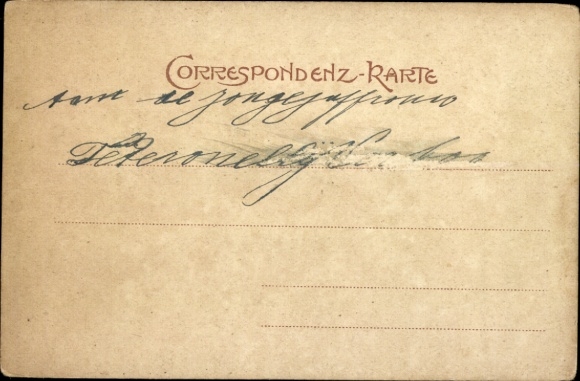 CORRESPONDENZ-KARTE
Aan de jongejuffrouw
Peteronella